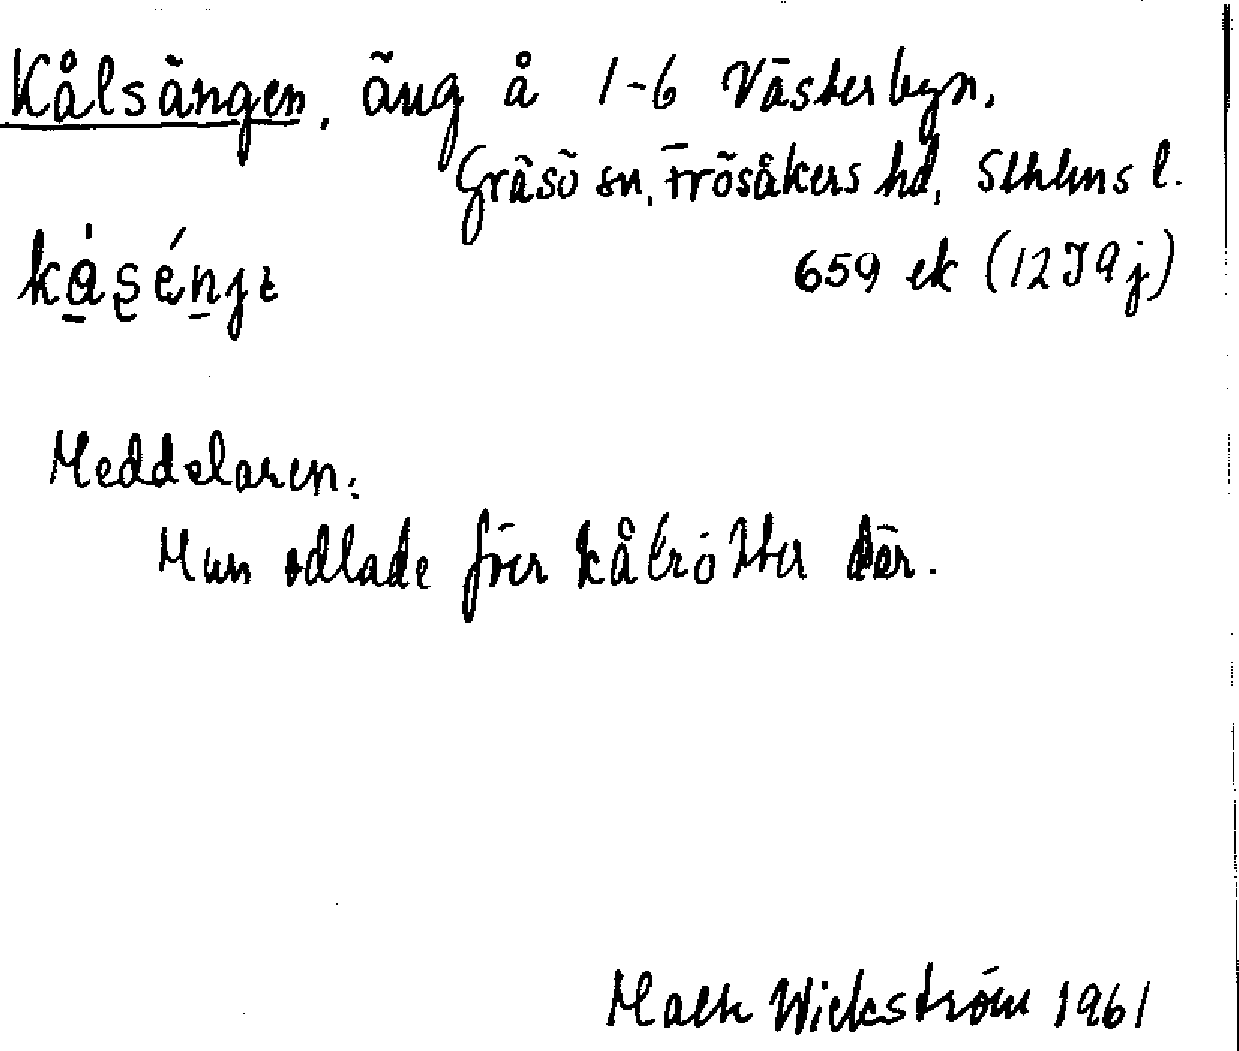 Kålsängen, äng å 1-6 Västerbyn,
Gräsö sn, Frösåkers hd, Sthlms l.
659 ek (12I9j)
Meddelaren:
Man odlade förr kålrötter där.
Wickström 1961